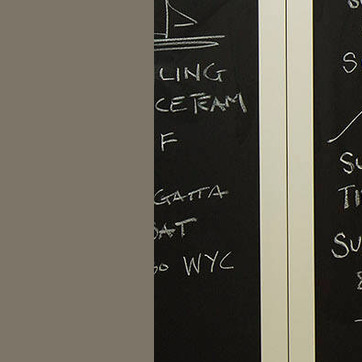 LING
CE TEAM
F
GATTA
SAT
30 WYC
S
SU
TI
SU